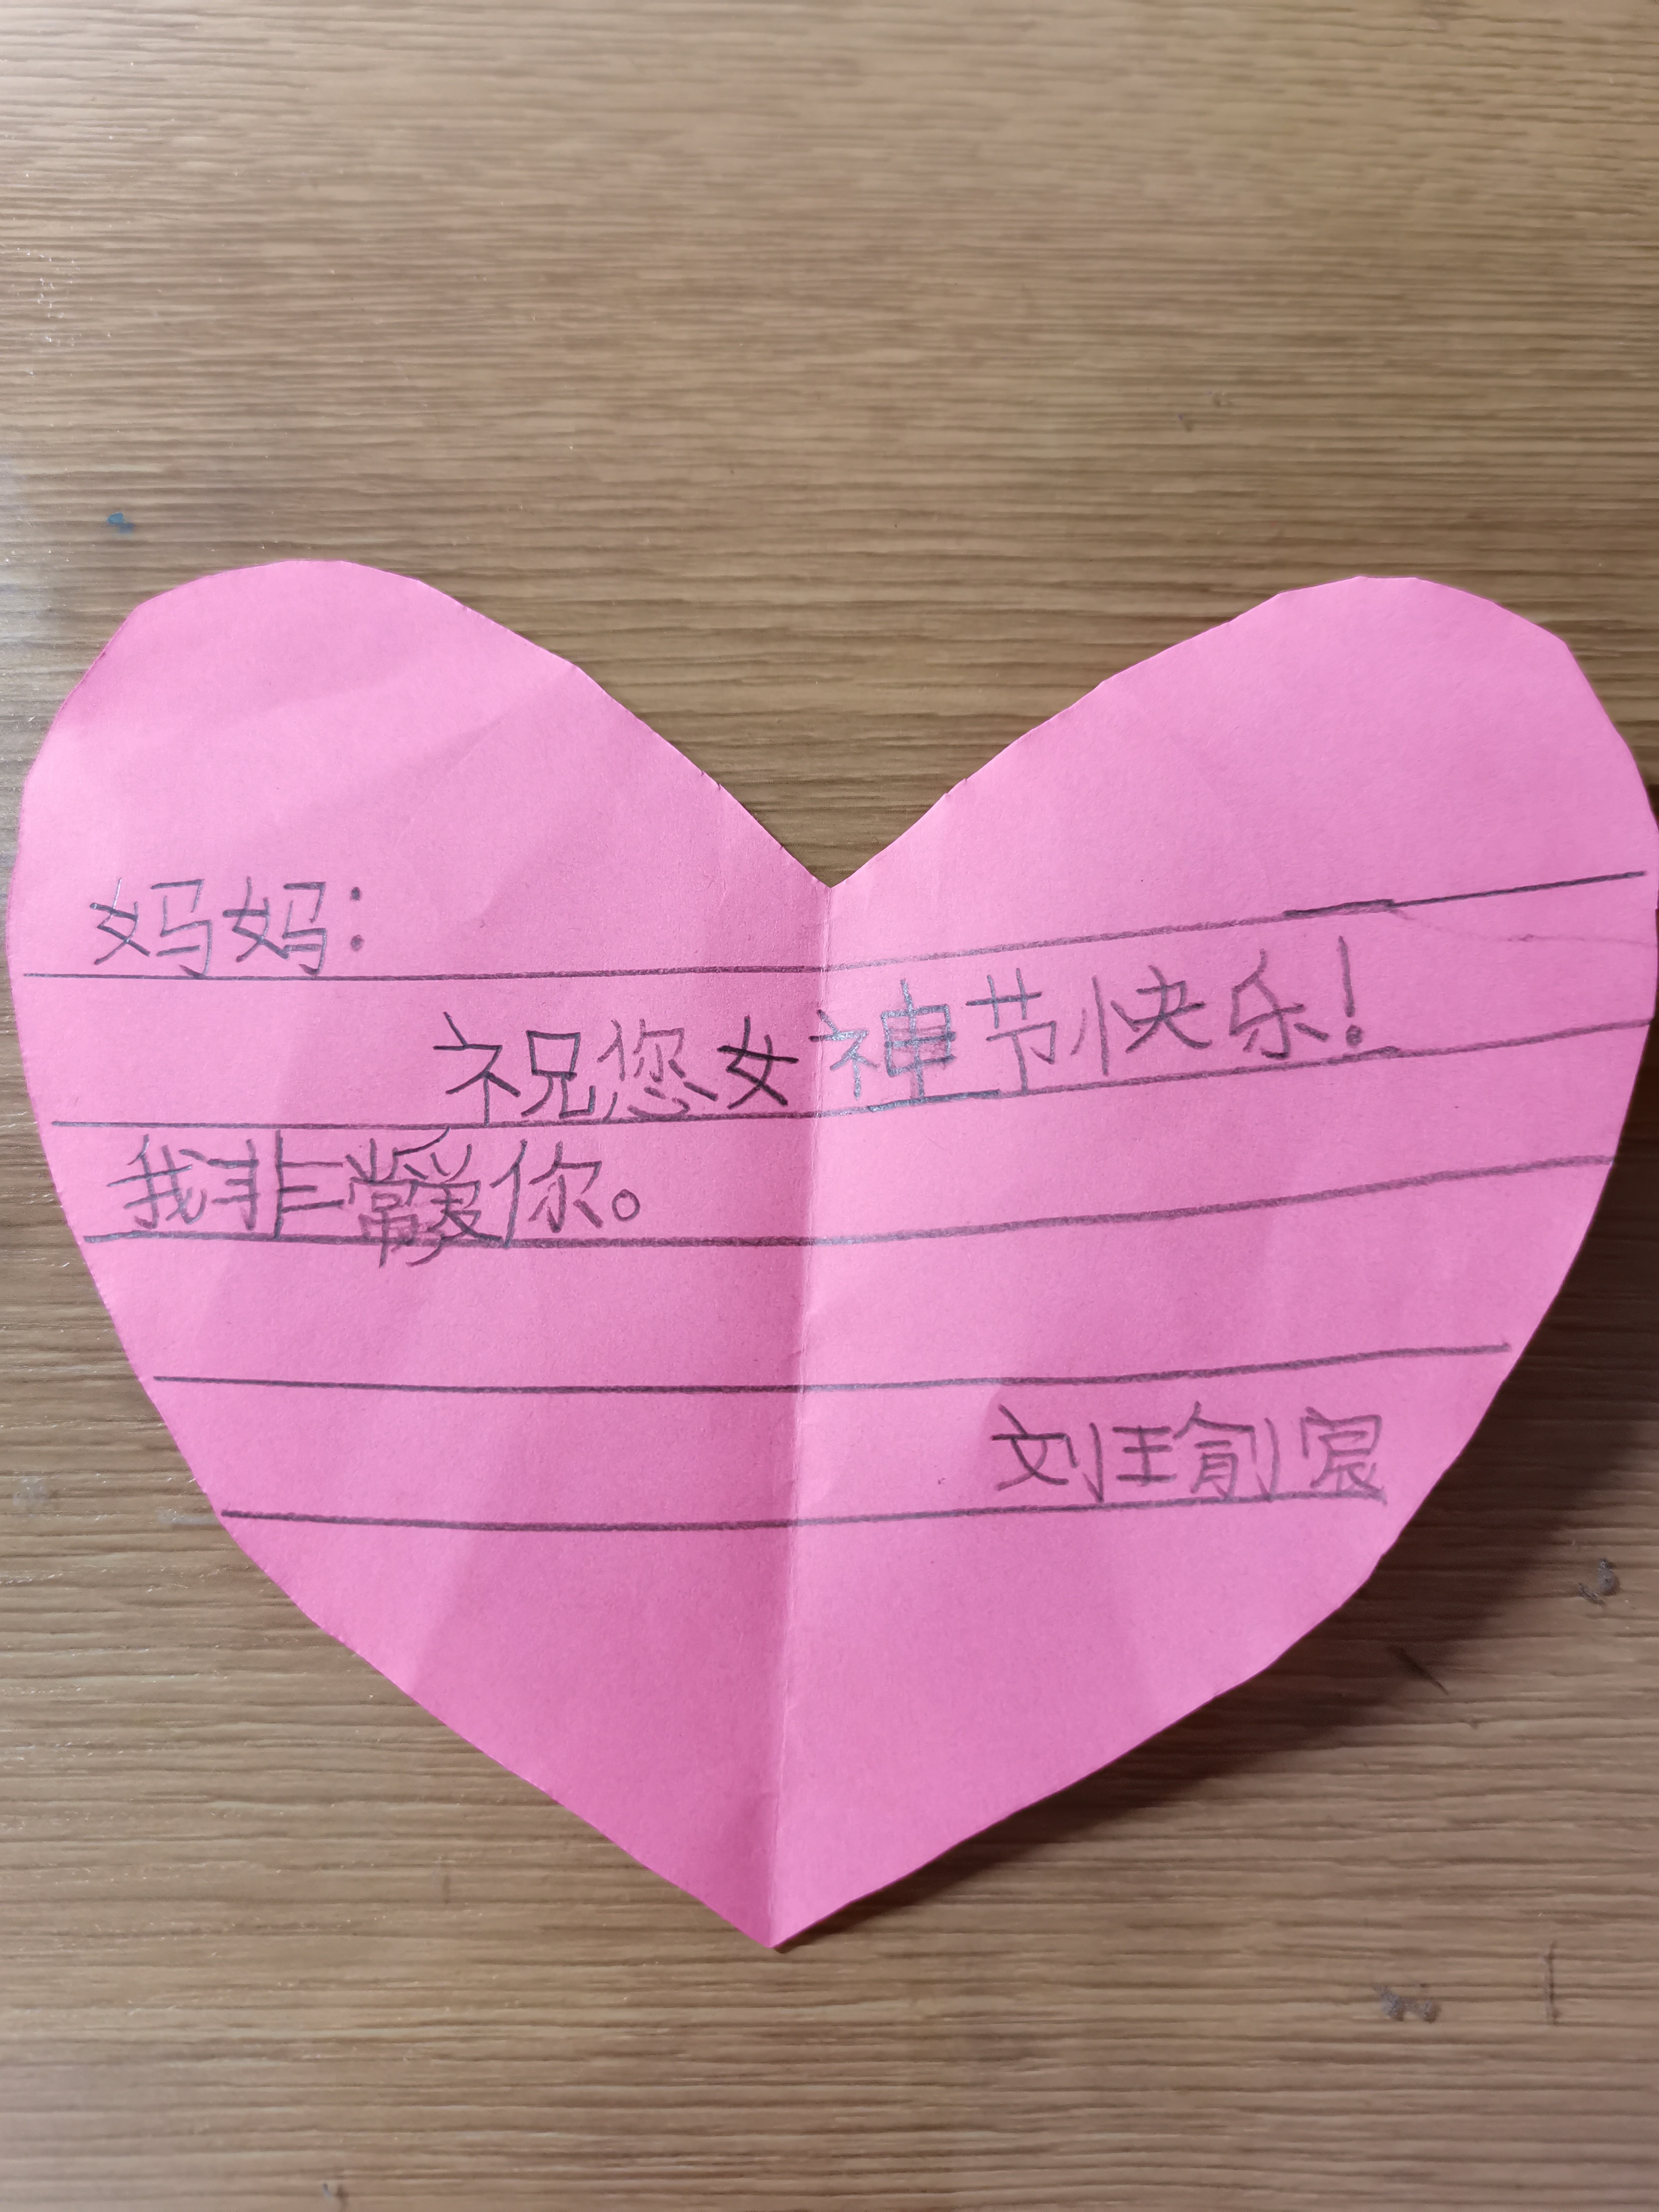 妈妈:
祝您女神节快乐!
我非常爱你。
刘瑜宸